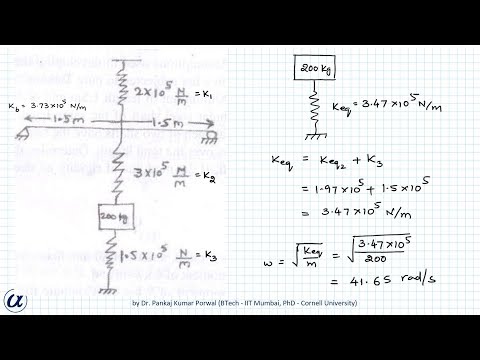 2×10⁵ N/m = K₁
K_b = 3.73×10⁵ N/m
1.5m 1.5m
3×10⁵ N/m = K₂
200kg
1.5×10⁵ N/m = K₃
200 Kg
Keq = 3.47×10⁵ N/m
Keq = Keq₂ + K₃
= 1.97×10⁵ + 1.5×10⁵
= 3.47×10⁵ N/m
ω = √(Keq/m) = √(3.47×10⁵/200)
= 41.65 rad/s
α
by Dr. Pankaj Kumar Porwal (BTech - IIT Mumbai, PhD - Cornell University)